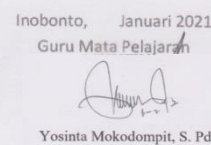 Inobonto, Januari 2021
Guru Mata Pelajaran
Yosinta Mokodompit, S. Pd